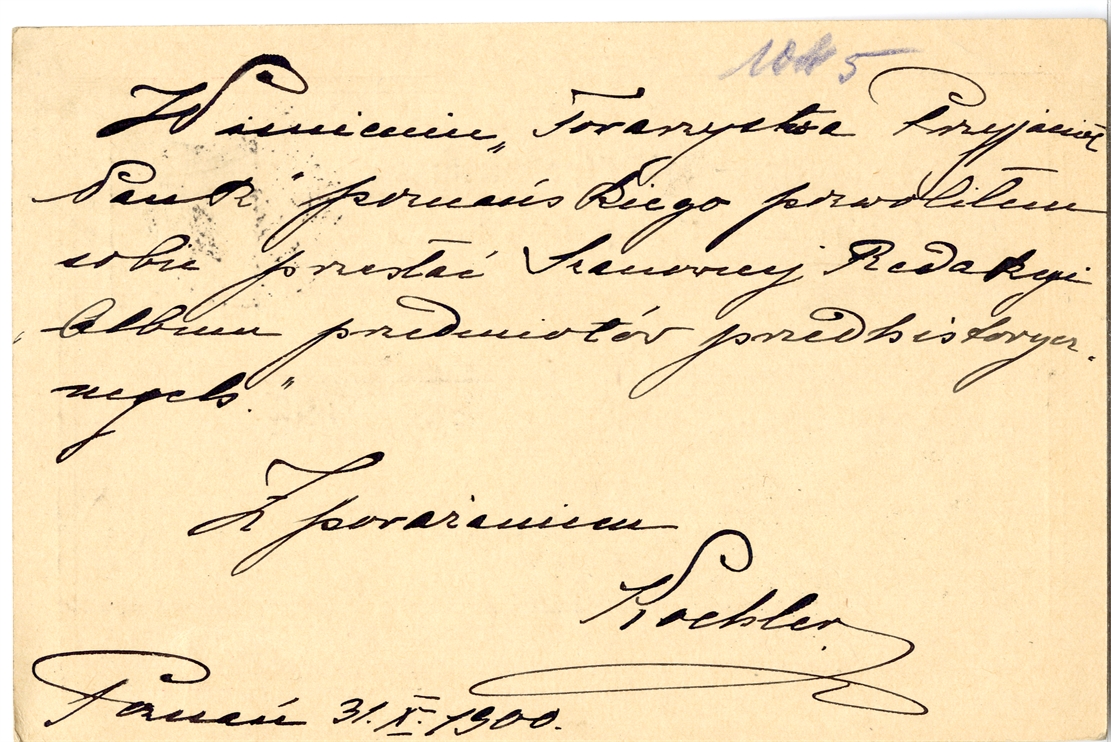 W imieniu „Towarzystwa Przyjaciół
Nauk" poznańskiego pozwoliłem
sobie przesłać Szanownej Redakcyi
„Album przedmiotów przedhistorycz-
nych."
Z poważaniem
Koehler
Poznań 31.X.1900.